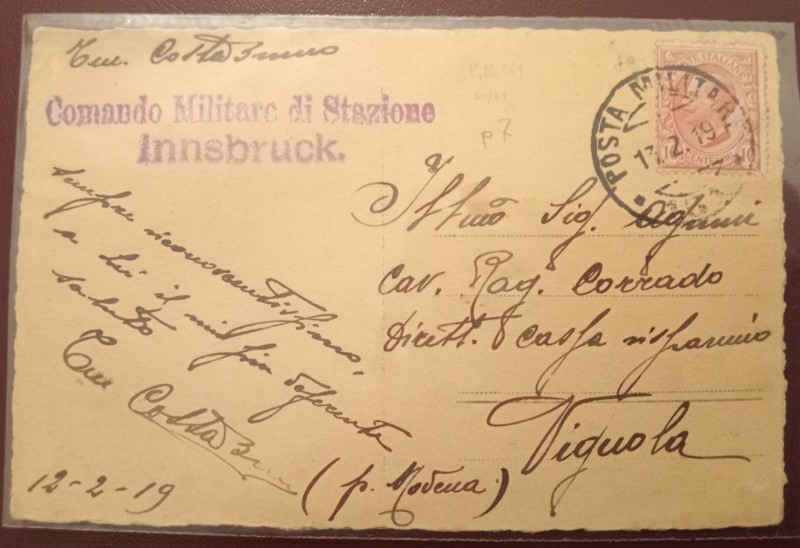 Ten. Costa Bruno
Comando Militare di Stazione
Innsbruck.
P.M. 151
p 7
POSTA MILITARE
19
POSTE ITALIANE
CENTES. 10
Ill.mo Sig. Agnini
Cav. Rag. Corrado
Dirett. Cassa risparmio
Vignola
(p. Modena)
sempre riconoscentissimo,
a Lei il mio più deferente
saluto
Ten Costa Bruno
12-2-19